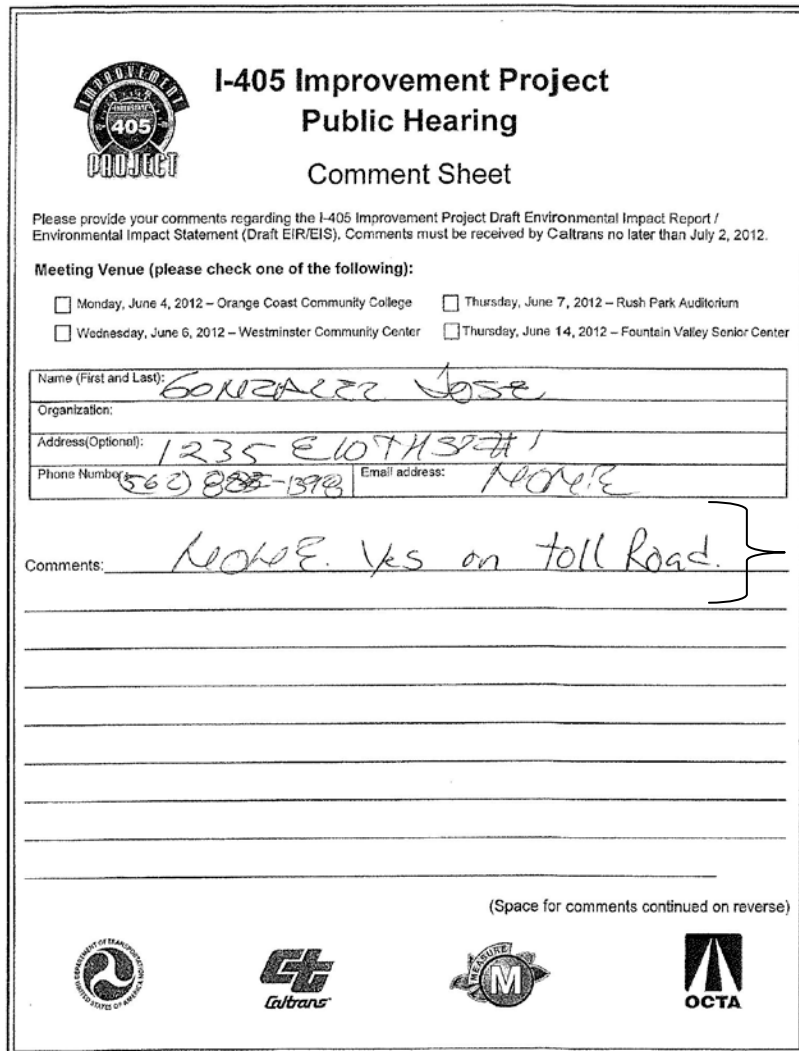 IMPROVEMENT
INTERSTATE
405
PROJECT
I-405 Improvement Project
Public Hearing
Comment Sheet
Please provide your comments regarding the I-405 Improvement Project Draft Environmental Impact Report /
Environmental Impact Statement (Draft EIR/EIS). Comments must be received by Caltrans no later than July 2, 2012.
Meeting Venue (please check one of the following):
Monday, June 4, 2012 – Orange Coast Community College
Thursday, June 7, 2012 – Rush Park Auditorium
Wednesday, June 6, 2012 – Westminster Community Center
Thursday, June 14, 2012 – Fountain Valley Senior Center
Name (First and Last): GONZALEZ JOSE
Organization:
Address(Optional): 1235 E 10TH ST #1
Phone Number: (562) Email address: NONE
Comments: NONE. Yes on toll Road.
(Space for comments continued on reverse)
DEPARTMENT OF TRANSPORTATION
UNITED STATES OF AMERICA
Caltrans
MEASURE
M
OCTA